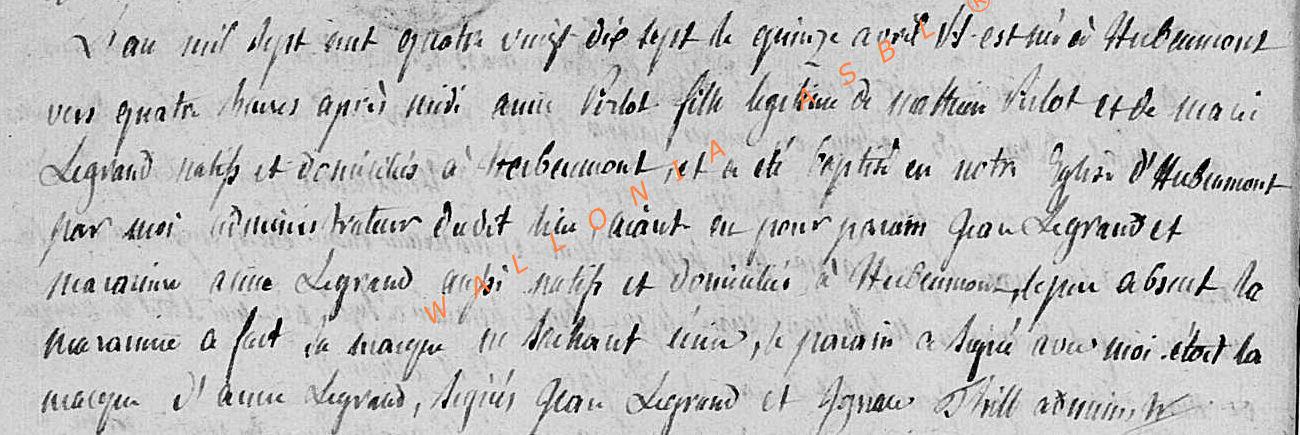 L'an mil sept cent quatre vingt dix sept le quinze avril est née à Herbeumont
vers quatre heures après midi anne Pirlot fille legitime de mathieu Pirlot et de marie
Legrand natifs et domiciliés à Herbeumont, et a été baptisée en notre Eglise d'Herbeumont
par moi administrateur dudit lieu, aiant eu pour parain Jean Legrand et
maraine anne Legrand aussi natifs et domiciliés à Herbeumont, le pere absent la
maraine a fait sa marque ne sachant écrire, le parain a signé avec moi étoit la
marque d'anne Legrand, signés Jean Legrand et Ignace Thill administr
WALLONIA ASBL ®